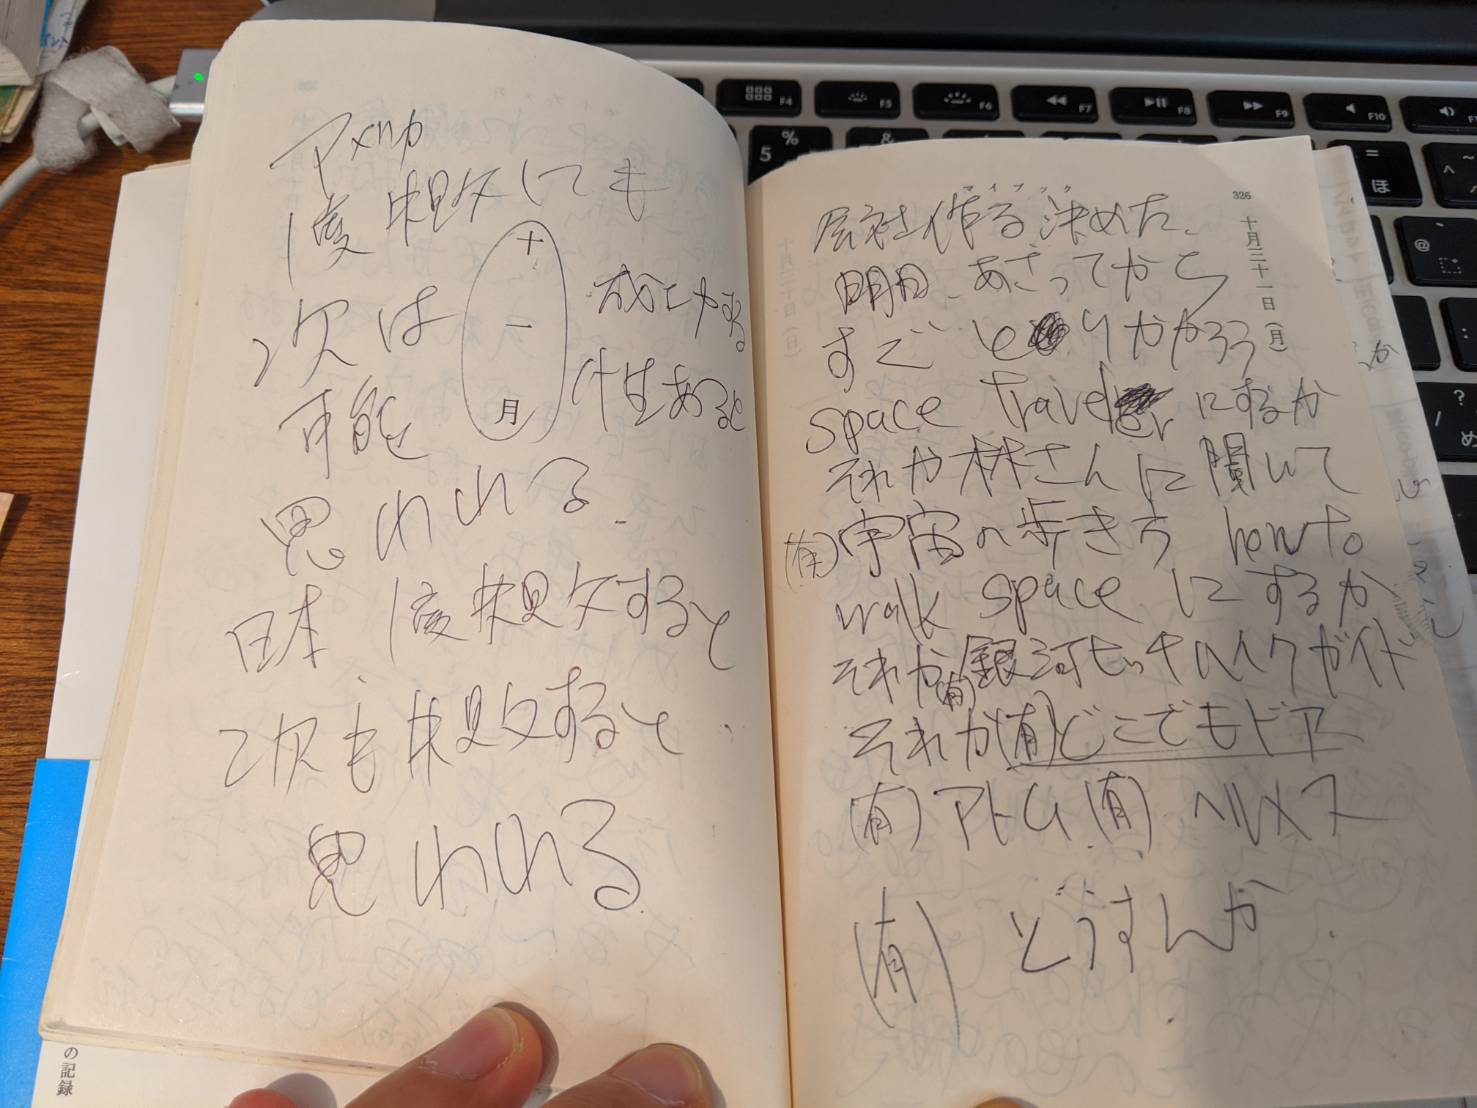 アメリカ
1度失敗しても
次は 成功する
可能 性あると
思われる.
日本 1度失敗すると
次も失敗すると
思われる
十一月
マイブック
326
十月三十一日(月)
会社作る決めた、
明日、あさってから
すぐ とりかかろう
space traveler にするか
それか林さんに聞いて
(有)宇宙の歩き方 how to
walk space にするか
それか(有)銀河ヒッチハイクガイド
それか(有)どこでもドアー
(有)アトム(有)ヘルメス
(有) どうすんか.
の記録
F4
F5
F6
F7
F8
F9
F10
%
5
&
=
ほ
^
~
@
?
/
め